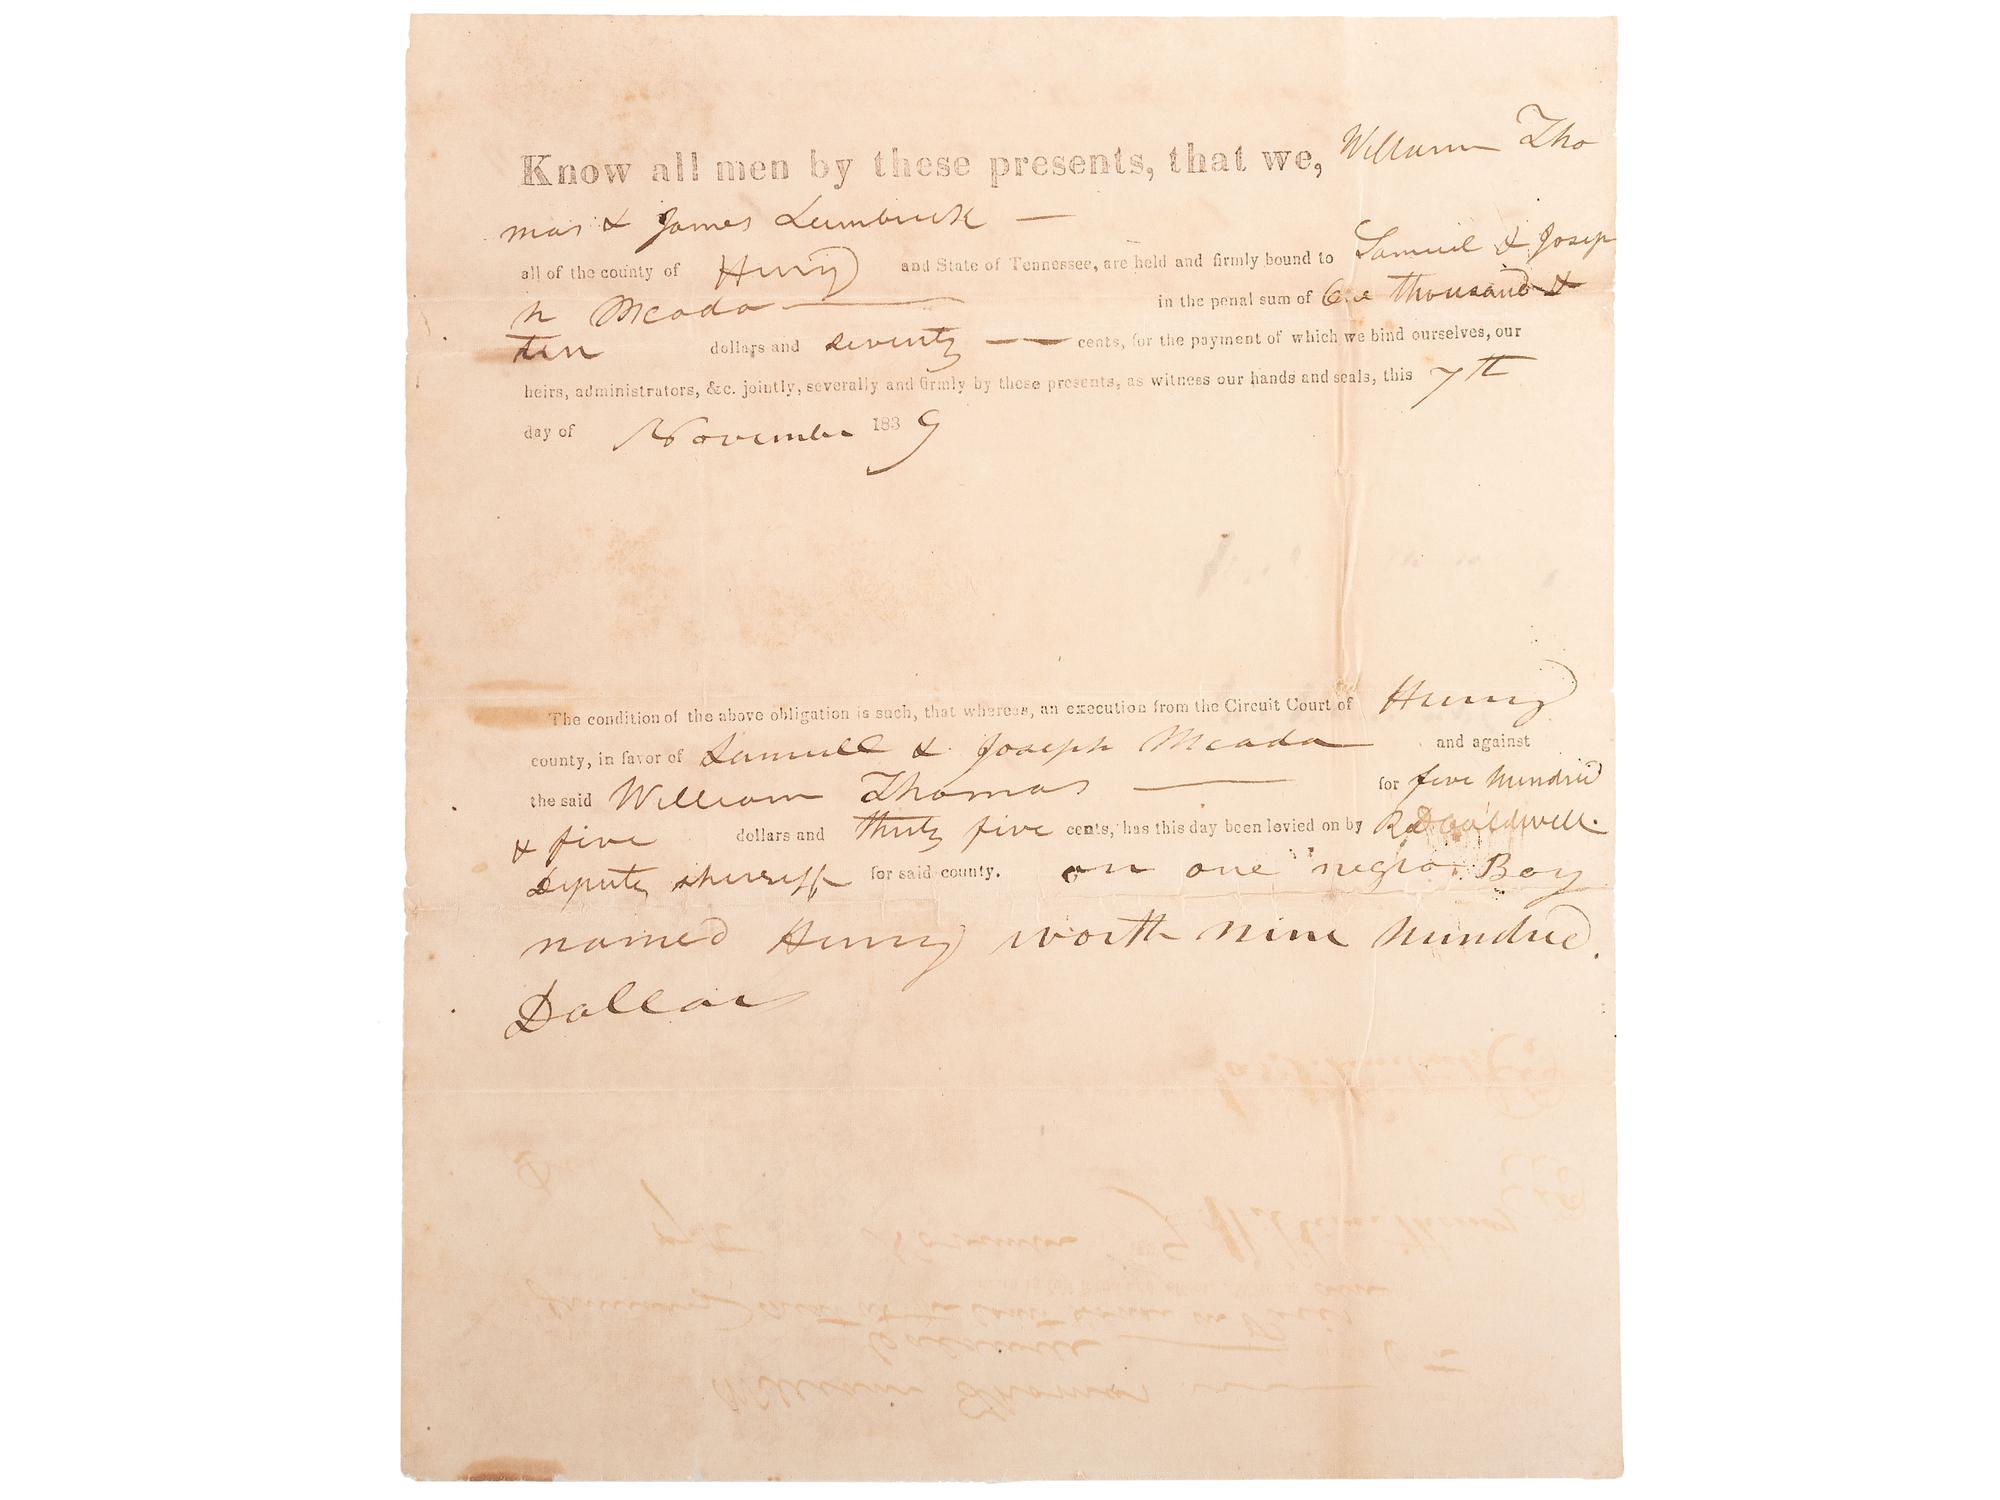 Know all men by these presents, that we, William Tho
mas & James Lumbrick
all of the county of Henry and State of Tennessee, are held and firmly bound to Samuel & Josep
h Meada in the penal sum of One thousand &
ten dollars and seventy cents, for the payment of which we bind ourselves, our
heirs, administrators, &c. jointly, severally and firmly by these presents, as witness our hands and seals, this 7th
day of November 1839
The condition of the above obligation is such, that whereas, an execution from the Circuit Court of Henry
county, in favor of Samuell & Joseph Meada and against
the said William Thomas for five hundred
& five dollars and thirty five cents, has this day been levied on by Caldwell
Deputy sherriff for said county. on one negro Boy
named Henry worth nine hundred.
Dollars